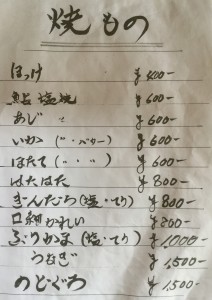 焼もの
ほっけ ¥400-
鮎塩焼 ¥600-
あじ ¥600-
いか(〃・バター) ¥600-
ほたて(〃・〃) ¥600-
はたはた ¥800-
ぎんだら(塩・てり) ¥800-
口細かれい ¥800-
ぶりかま(塩・てり) ¥1000-
うなぎ ¥1,500-
のどぐろ ¥1,500-